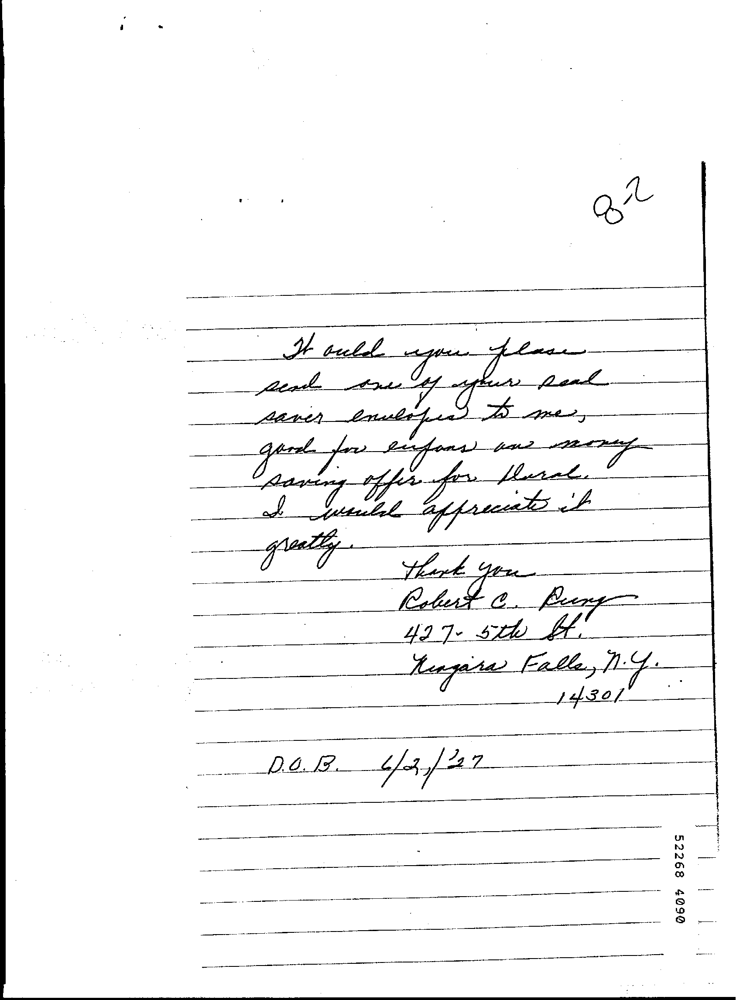 8-2
Would you please
send one of your seal
saver envelopes to me,
good for on money
saving offer for
I would appreciate it
greatly.
Thank you
Robert C.
427- 5th St.
Niagara Falls, N.Y.
14301
D.O.B. 6/2,/'27
52268 4090